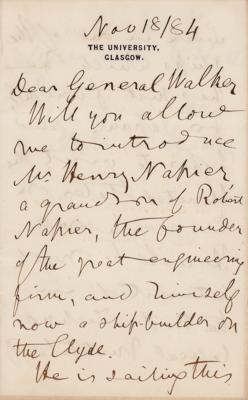 Nov 18/84
THE UNIVERSITY,
GLASGOW.
Dear General Walker
Will you allow
me to introduce
Mr Henry Napier
a grandson of Robert
Napier, the founder
of the great engineering
firm, and himself
now a ship-builder on
the Clyde.
He is sailing this